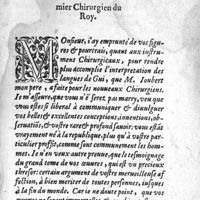 mier Chirurgien du
Roy.
MOnsieur, i'ay emprunté de vos figu-
res & pourtrais, quant aux instru-
mens Chirurgicaux, pour rendre
plus accomplie l'interpretation des
langues de Gui, que M. Ioubert
mon pere, a faite pour les nouueaux Chirurgiens.
Ie m'asseure, que vous n'é serez pas marry, veu que
vous estes si liberal à communiquer & departir
vos belles & excellentes conceptions, inuentions, ob-
seruatiõs, & vostre rare & profond sauoir: vous estãt
vrayement né à la republique, plus qu'à vostre par-
ticulier profit, comme sont communement les hommes.
Ie n'en veux autre preuue, que le tesmoignage
du grand tome de voz œuures, qui est vn precieux
thresor: certain argument de vostre merueilleuse af-
fection, à bien meriter de toutes personnes, iusques
à la fin du monde. Car ie ne doute point, que voz